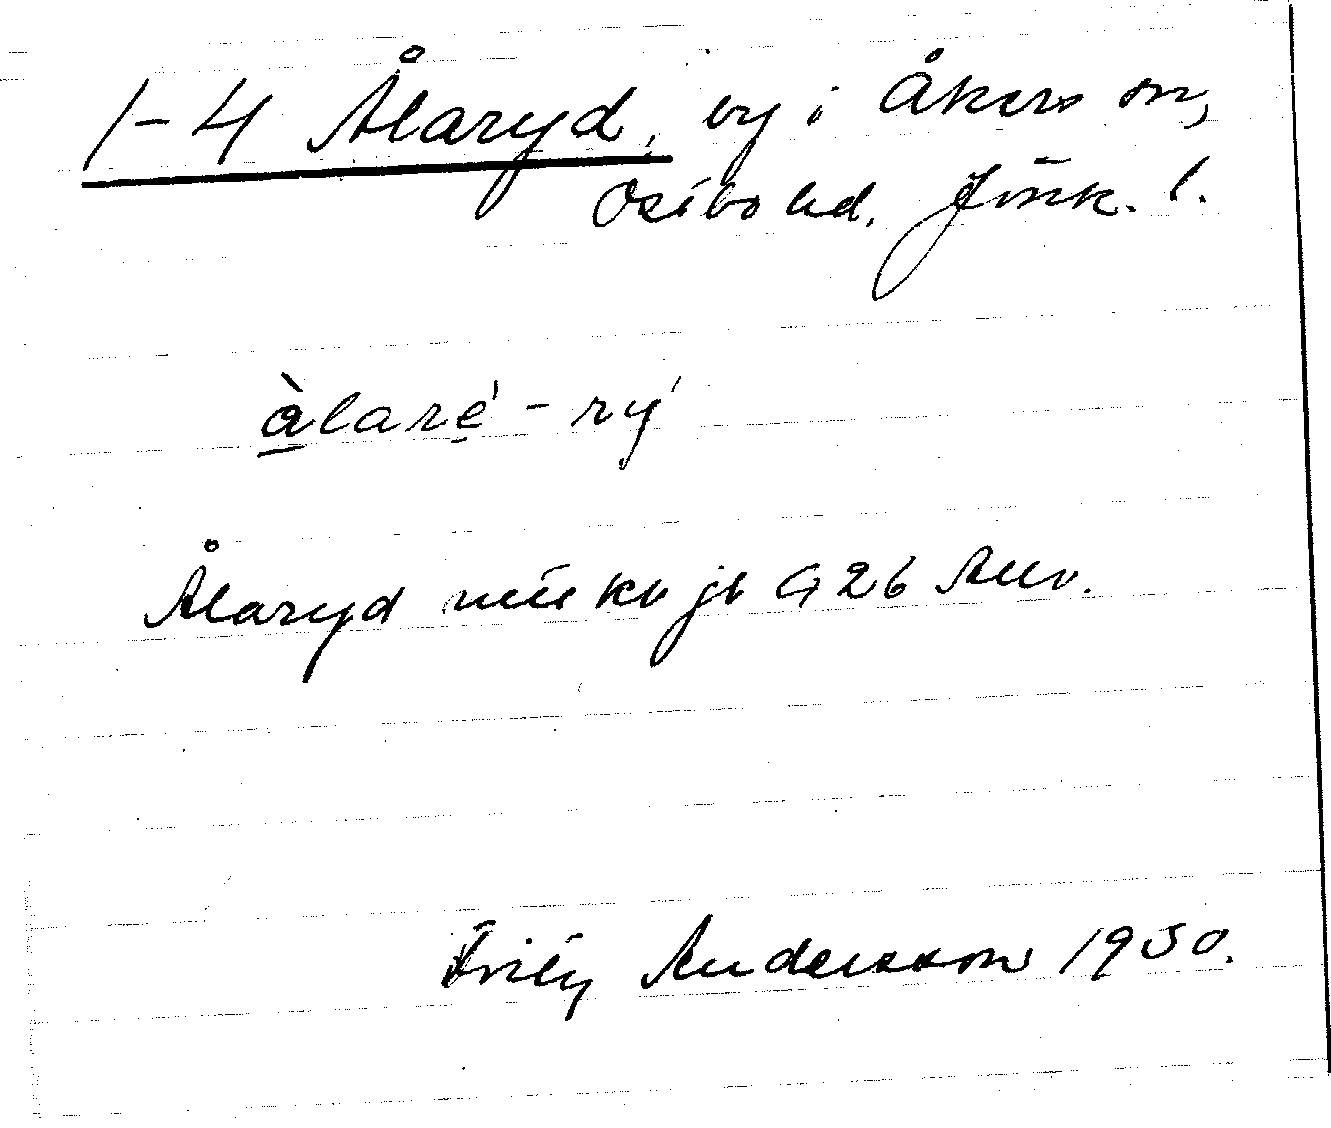 1-4 Ålaryd, by i Åkers sn,
Östbo hd. Jönk. l.
àlaré - rý
Ålaryd utt. kb jb G 26 Anv.
Fritz Andersson 1930.